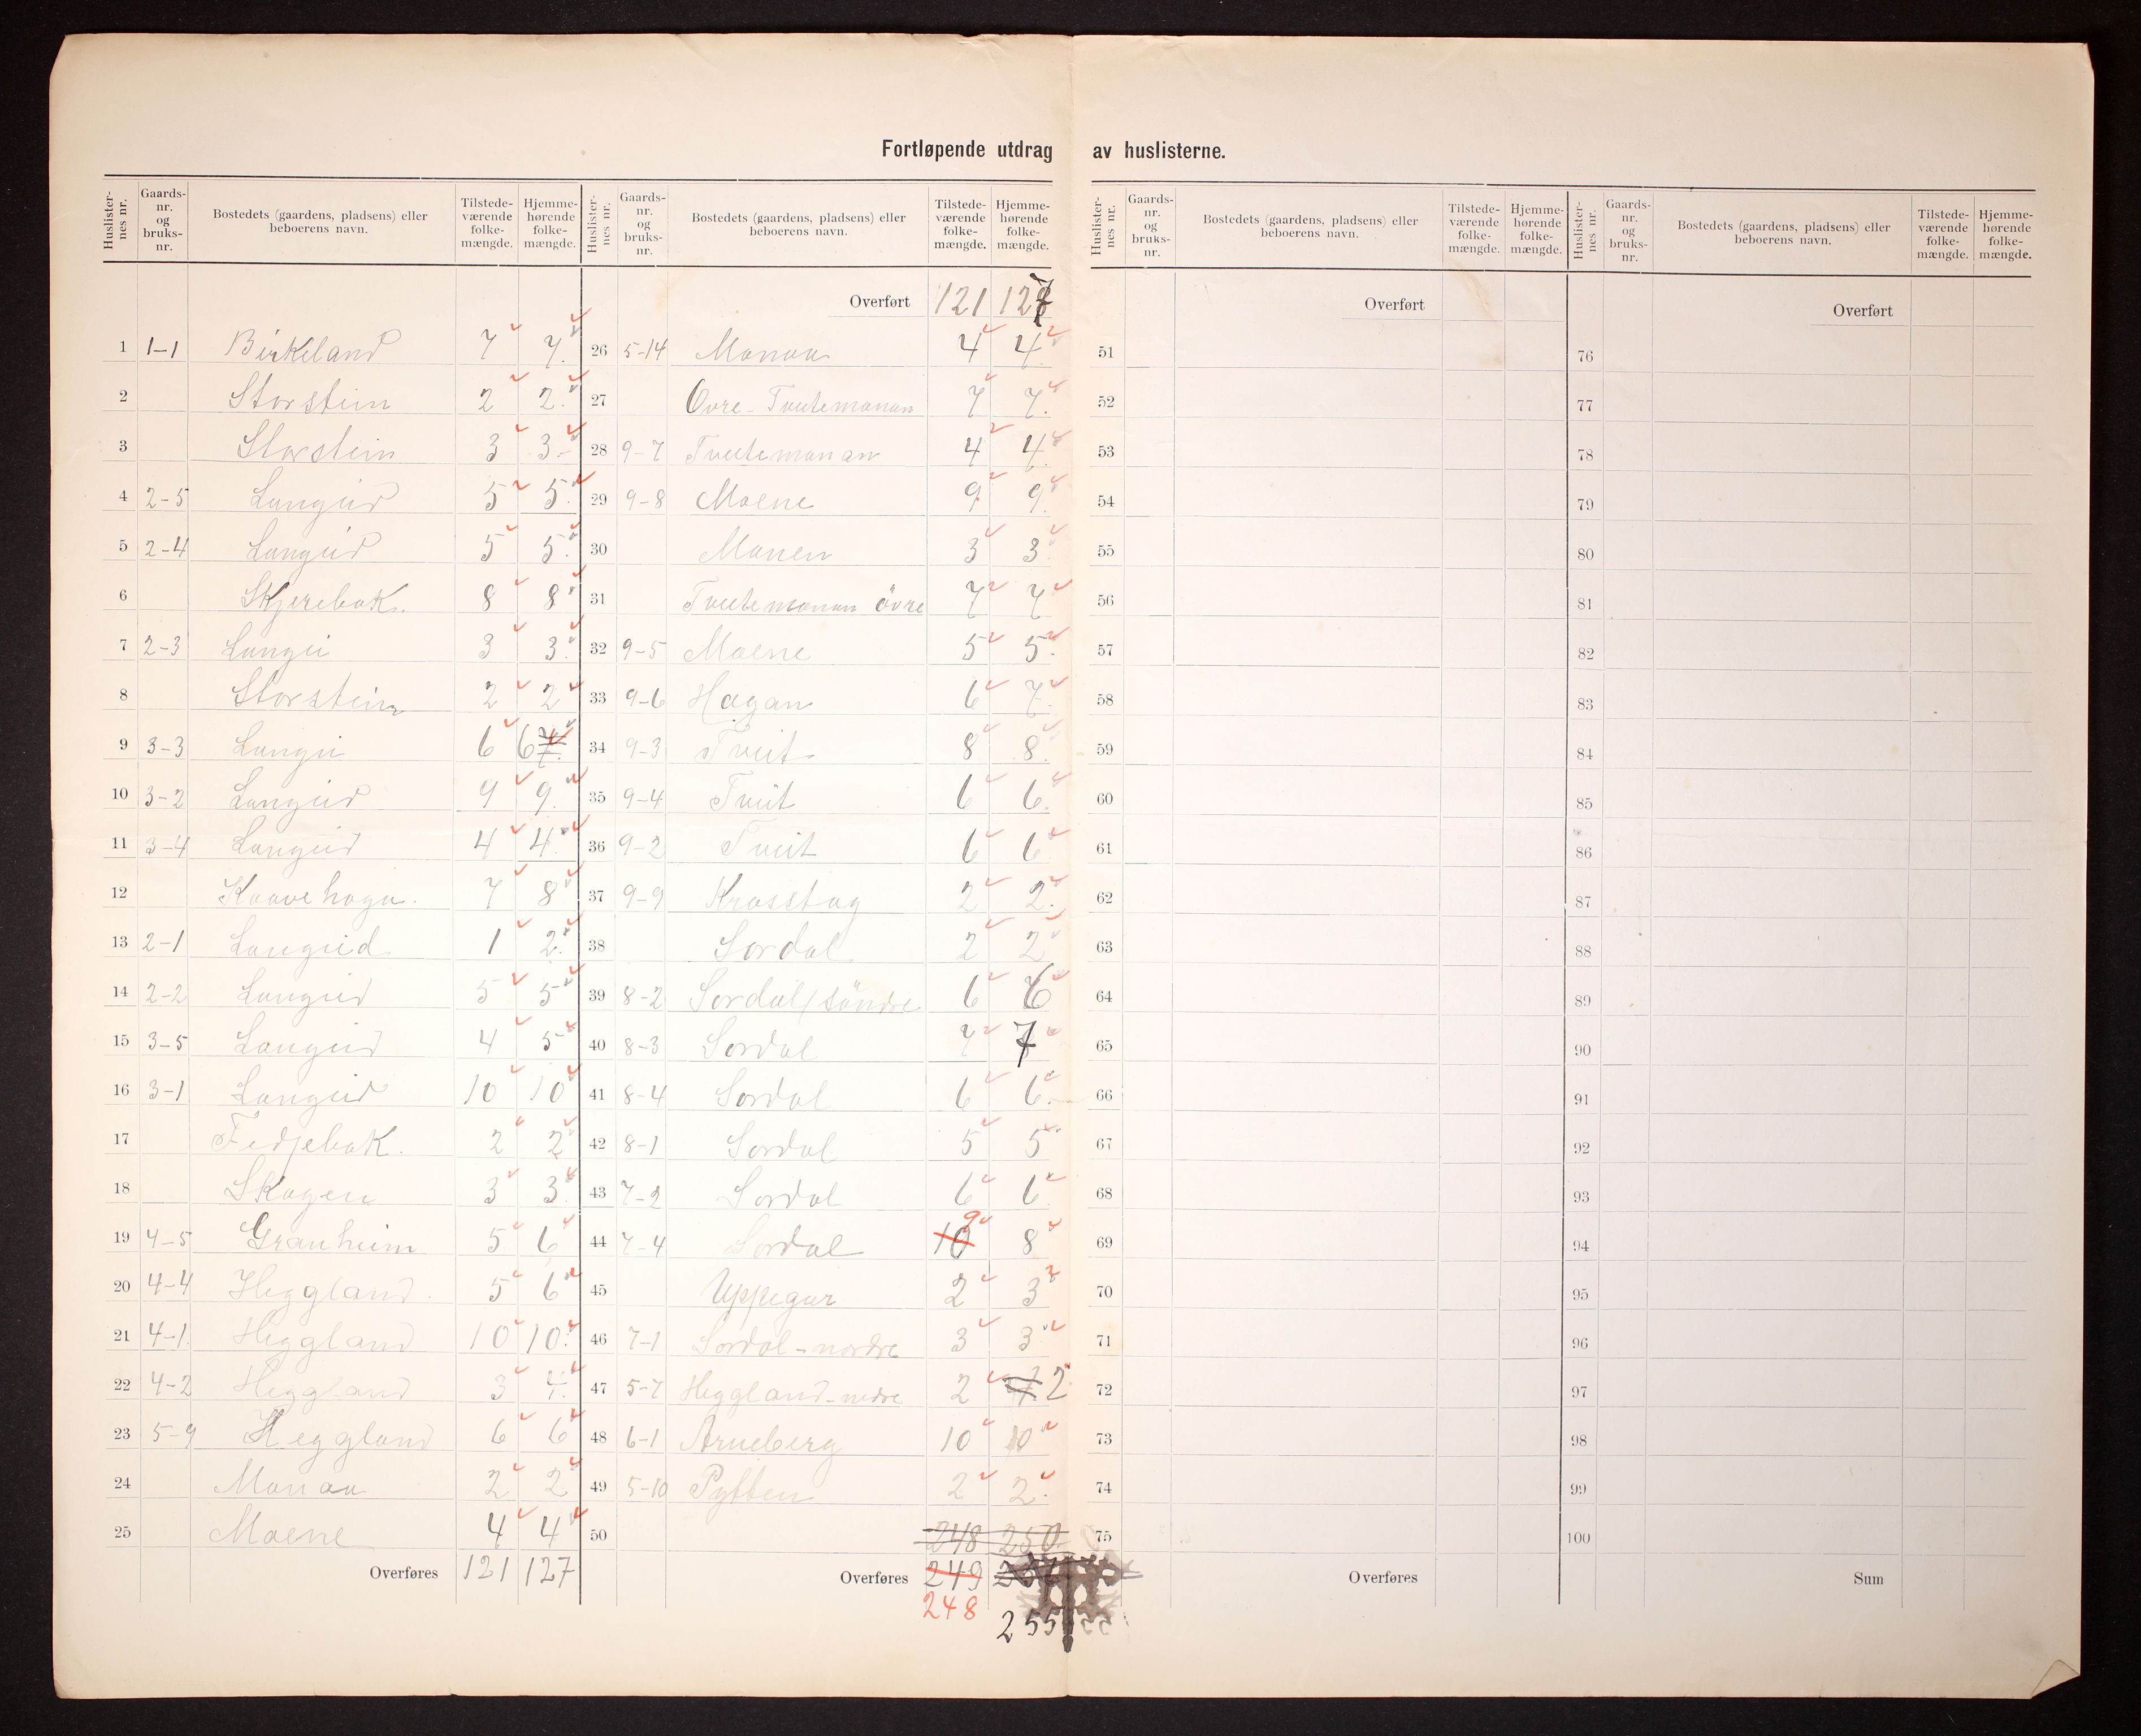 Fortløpende utdrag av huslisterne.
Huslisternes nr. Gaardsnr. og bruksnr. Bostedets (gaardens, pladsens) eller beboerens navn. Tilstedeværende folkemængde. Hjemmehørende folkemængde.
Huslisternes nr. Gaardsnr. og bruksnr. Bostedets (gaardens, pladsens) eller beboerens navn. Tilstedeværende folkemængde. Hjemmehørende folkemængde.
1 1-1 Birkeland 7 7.
2 Storstein 2 2.
3 Storstein 3 3.
4 2-5 Langeid 5 5.
5 2-4 Langeid 5 5.
6 Skjerebak. 8 8
7 2-3 Langei 3 3.
8 Storstein 2 2
9 3-3 Langei 6 6 7.
10 3-2 Langeid 9 9.
11 3-4 Langeid 4 4.
12 Kaavehagu. 7 8
13 2-1 Langeid 1 2.
14 2-2 Langeid 5 5
15 3-5 Langeid 4 5
16 3-1 Langeid 10 10
17 Fedjebak. 2 2
18 Skogen 3 3.
19 4-5 Granheim 5 6
20 4-4 Heggland. 5 6
21 4-1 Heggland 10 10.
22 4-2 Heggland 3 4.
23 5-9 Heggland 6 6
24 Monan 2 2
25 Moene 4 4
Overføres 121 127
Overført 121 127
26 5-14 Monan 4 4
27 Øvre-Tveitemonan 7 7.
28 9-7 Tveitemonan 4 4.
29 9-8 Moene 9 9.
30 Monen 3 3.
31 Tveitemonan övre 7 7
32 9-5 Moene 5 5.
33 9-6 Hagan 6 7.
34 9-3 Tveit 8 8.
35 9-4 Tveit 6 6.
36 9-2 Tveit 6 6
37 9-9 Krosstøg 2 2.
38 Sordal 2 2
39 8-2 Sordal, söndre 6 6
40 8-3 Sordal 7 7
41 8-4 Sordal 6 6.
42 8-1 Sordal 5 5
43 7-2 Sordal 6 6
44 7-4 Sordal 10 9 8
45 Uppegar 2 3
46 7-1 Sordal-nordre 3 3
47 5-7 Heggland-nedre 2 2
48 6-1 Arneberg 10 10
49 5-10 Pytten 2 2.
50 248 250
Overføres 249
248 255
Huslisternes nr. Gaardsnr. og bruksnr. Bostedets (gaardens, pladsens) eller beboerens navn. Tilstedeværende folkemængde. Hjemmehørende folkemængde.
Overført
51
52
53
54
55
56
57
58
59
60
61
62
63
64
65
66
67
68
69
70
71
72
73
74
75
Overføres
Huslisternes nr. Gaardsnr. og bruksnr. Bostedets (gaardens, pladsens) eller beboerens navn. Tilstedeværende folkemængde. Hjemmehørende folkemængde.
Overført
76
77
78
79
80
81
82
83
84
85
86
87
88
89
90
91
92
93
94
95
96
97
98
99
100
Sum